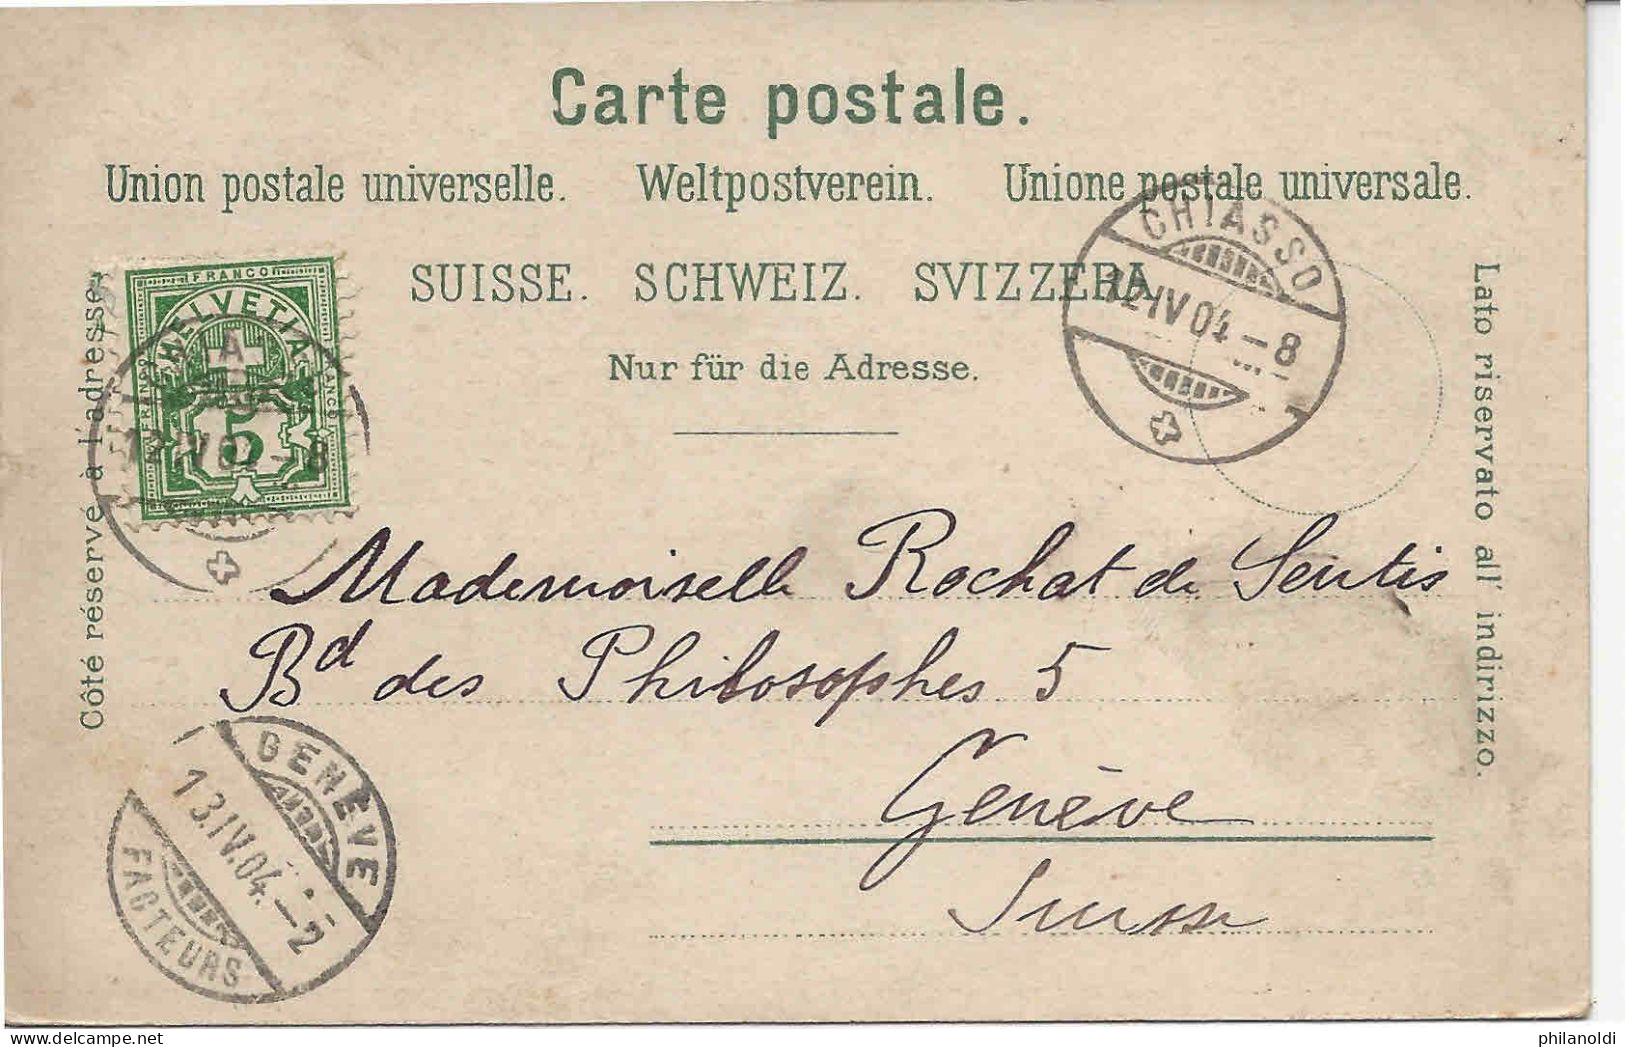 Carte postale.
Union postale universelle. Weltpostverein. Unione postale universale.
SUISSE. SCHWEIZ. SVIZZERA
Nur für die Adresse.
Côté réservé à l'adresse.
Lato riservato all' indirizzo.
FRANCO
HELVETIA
FRANCO
FRANCO
5
CHIASSO
12 IV 04 - 8
Mademoiselle Rochat de Sentis
Bd des Philosophes 5
Genève
Suisse
GENÈVE
13.IV.04. - 2
FACTEURS
philanoldi